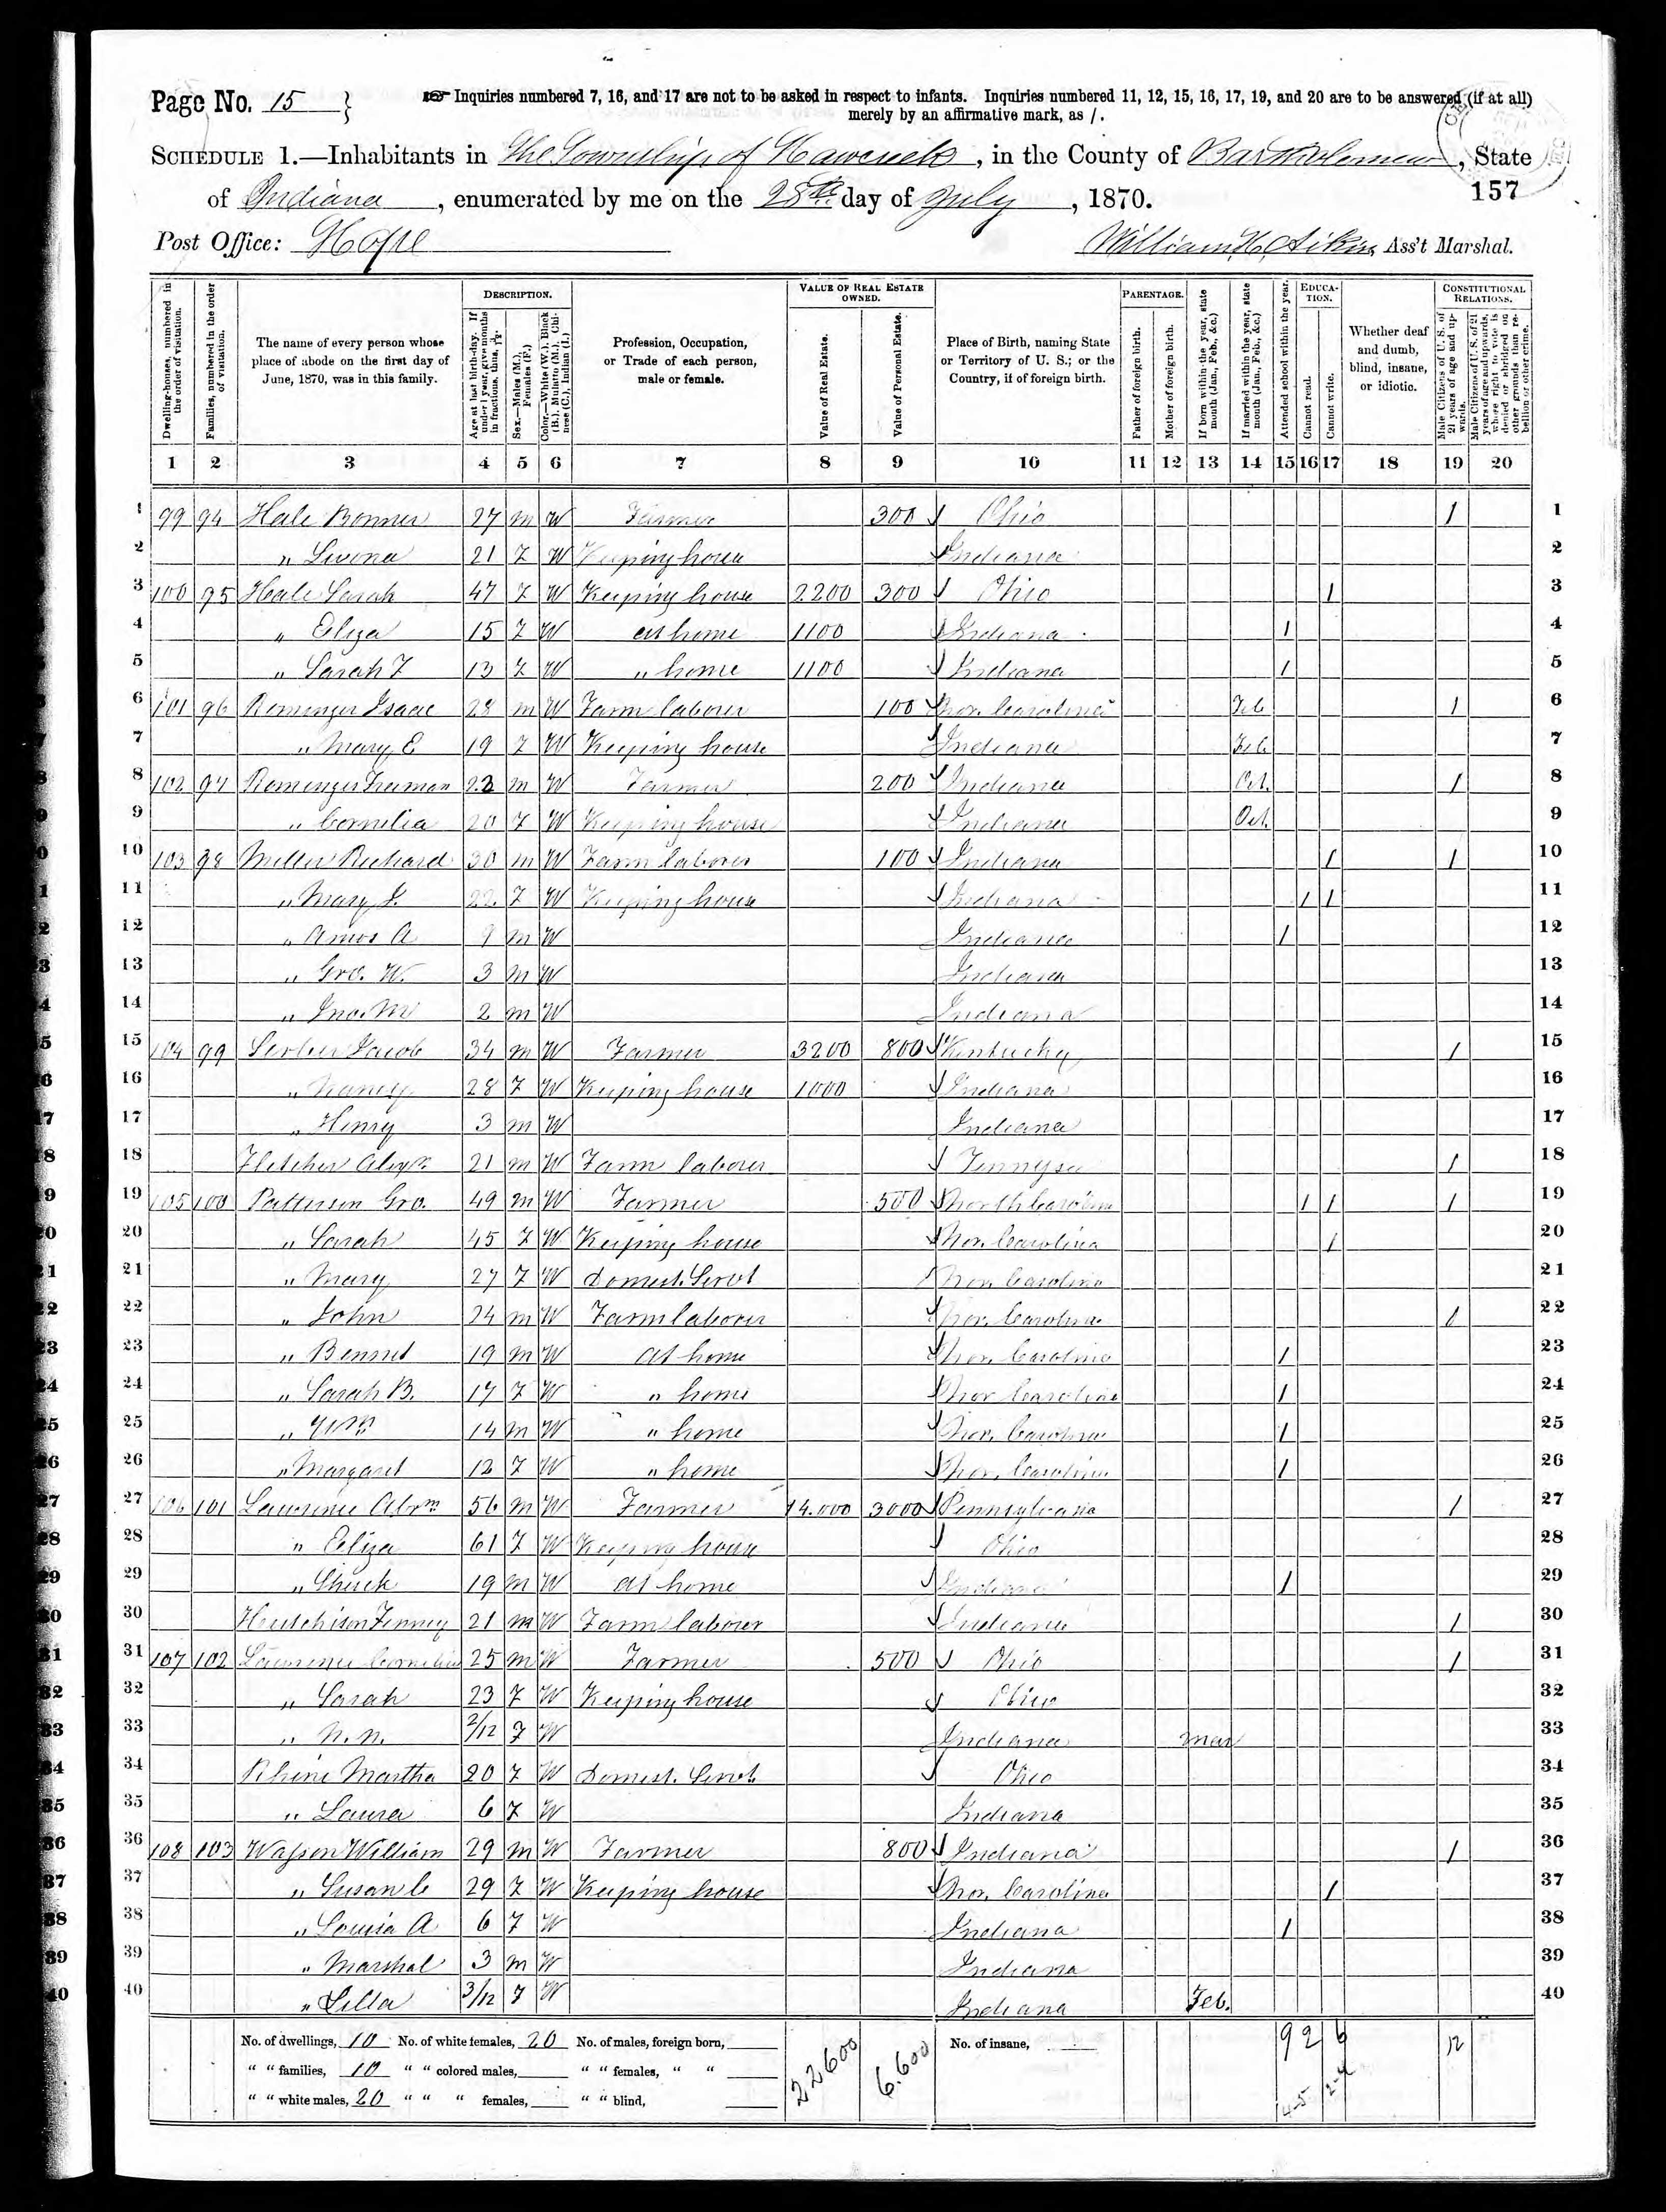 Page No. 15 }
☞ Inquiries numbered 7, 16, and 17 are not to be asked in respect to infants. Inquiries numbered 11, 12, 15, 16, 17, 19, and 20 are to be answered (if at all)
merely by an affirmative mark, as /.
SCHEDULE 1.—Inhabitants in The Township of Hawcreek, in the County of Bartholomew, State
of Indiana, enumerated by me on the 28th day of July, 1870.
157
Post Office: Hope
William H. Aikin, Ass't Marshal.
Dwelling-houses, numbered in the order of visitation.
Families, numbered in the order of visitation.
The name of every person whose place of abode on the first day of June, 1870, was in this family.
DESCRIPTION.
Age at last birth-day. If under 1 year, give months in fractions, thus, 3/12.
Sex.—Males (M.), Females (F.)
Color.—White (W.), Black (B.), Mulatto (M.), Chinese (C.), Indian (I.)
Profession, Occupation, or Trade of each person, male or female.
VALUE OF REAL ESTATE OWNED.
Value of Real Estate.
Value of Personal Estate.
Place of Birth, naming State or Territory of U. S.; or the Country, if of foreign birth.
PARENTAGE.
Father of foreign birth.
Mother of foreign birth.
If born within the year, state month (Jan., Feb., &c.)
If married within the year, state month (Jan., Feb., &c.)
Attended school within the year.
EDUCATION.
Cannot read.
Cannot write.
Whether deaf and dumb, blind, insane, or idiotic.
CONSTITUTIONAL RELATIONS.
Male Citizens of U. S. of 21 years of age and upwards.
Male Citizens of U. S. of 21 years of age and upwards, where right to vote is denied or abridged on other grounds than rebellion or other crime.
1 2 3 4 5 6 7 8 9 10 11 12 13 14 15 16 17 18 19 20
1 99 94 Hale Bonner 27 m W Farmer 300 Ohio / 1
2 " Livona 21 F W Keeping house Indiana 2
3 100 95 Hale Sarah 47 F W Keeping house 2200 300 Ohio / 3
4 " Eliza 15 F W at home 1100 Indiana / 4
5 " Sarah F 13 F W " home 1100 Indiana / 5
6 101 96 Romenger Isaac 28 m W Farm laborer 100 Nor. Carolina Feb / 6
7 " Mary E 19 F W Keeping house Indiana Feb 7
8 102 97 Romenger Freeman 23 m W Farmer 200 Indiana Oct. / 8
9 " Cornelia 20 F W Keeping house Indiana Oct. 9
10 103 98 Miller Richard 30 m W Farm laborer 100 Indiana / / 10
11 " Mary J. 22 F W Keeping house Indiana / / 11
12 " Amos A 9 m W Indiana / 12
13 " Geo. W. 3 m W Indiana 13
14 " Jno. M 2 m W Indiana 14
15 104 99 Jacob 34 m W Farmer 3200 800 Kentucky / 15
16 " Nancy 28 F W Keeping house 1000 Indiana 16
17 " Henry 3 m W Indiana 17
18 Fletcher Alexr. 21 m W Farm laborer Tennysee / 18
19 105 100 Patterson Geo. 49 m W Farmer 500 North Carolina / / / 19
20 " Sarah 45 F W Keeping house Nor. Carolina / 20
21 " Mary 27 F W Domest. Servt Nor. Carolina 21
22 " John 24 m W Farm laborer Nor. Carolina / 22
23 " Bennet 19 m W At home Nor. Carolina / 23
24 " Sarah B. 17 F W " home Nor Carolina / 24
25 " Wm 14 m W " home Nor. Carolina / 25
26 " Margaret 12 F W " home Nor. Carolina / 26
27 106 101 Lawrence Abrm 56 m W Farmer 14.000 3000 Pennsylvania / 27
28 " Eliza 61 F W Keeping house Ohio 28
29 " 19 m W At home Indiana / 29
30 Hutchison Finney 21 m W Farm laborer Indiana / 30
31 107 102 Lawrence Cornelius 25 m W Farmer 500 Ohio / 31
32 " Sarah 23 F W Keeping house Ohio 32
33 " N. N. 2/12 F W Indiana Mar 33
34 Rhine Martha 20 F W Domest. Servt. Ohio 34
35 " Laura 6 F W Indiana 35
36 108 103 Wasson William 29 m W Farmer 800 Indiana / 36
37 " Susan C 29 F W Keeping house Nor. Carolina / 37
38 " Louisa A 6 F W Indiana / 38
39 " Marshal 3 m W Indiana 39
40 " Lilla 3/12 F W Indiana Feb. 40
No. of dwellings, 10 No. of white females, 20 No. of males, foreign born, 22600 6.600 No. of insane, 9 2 6 12
" " families, 10 " " colored males, " " females, " "
" " white males, 20 " " " females, " " blind,